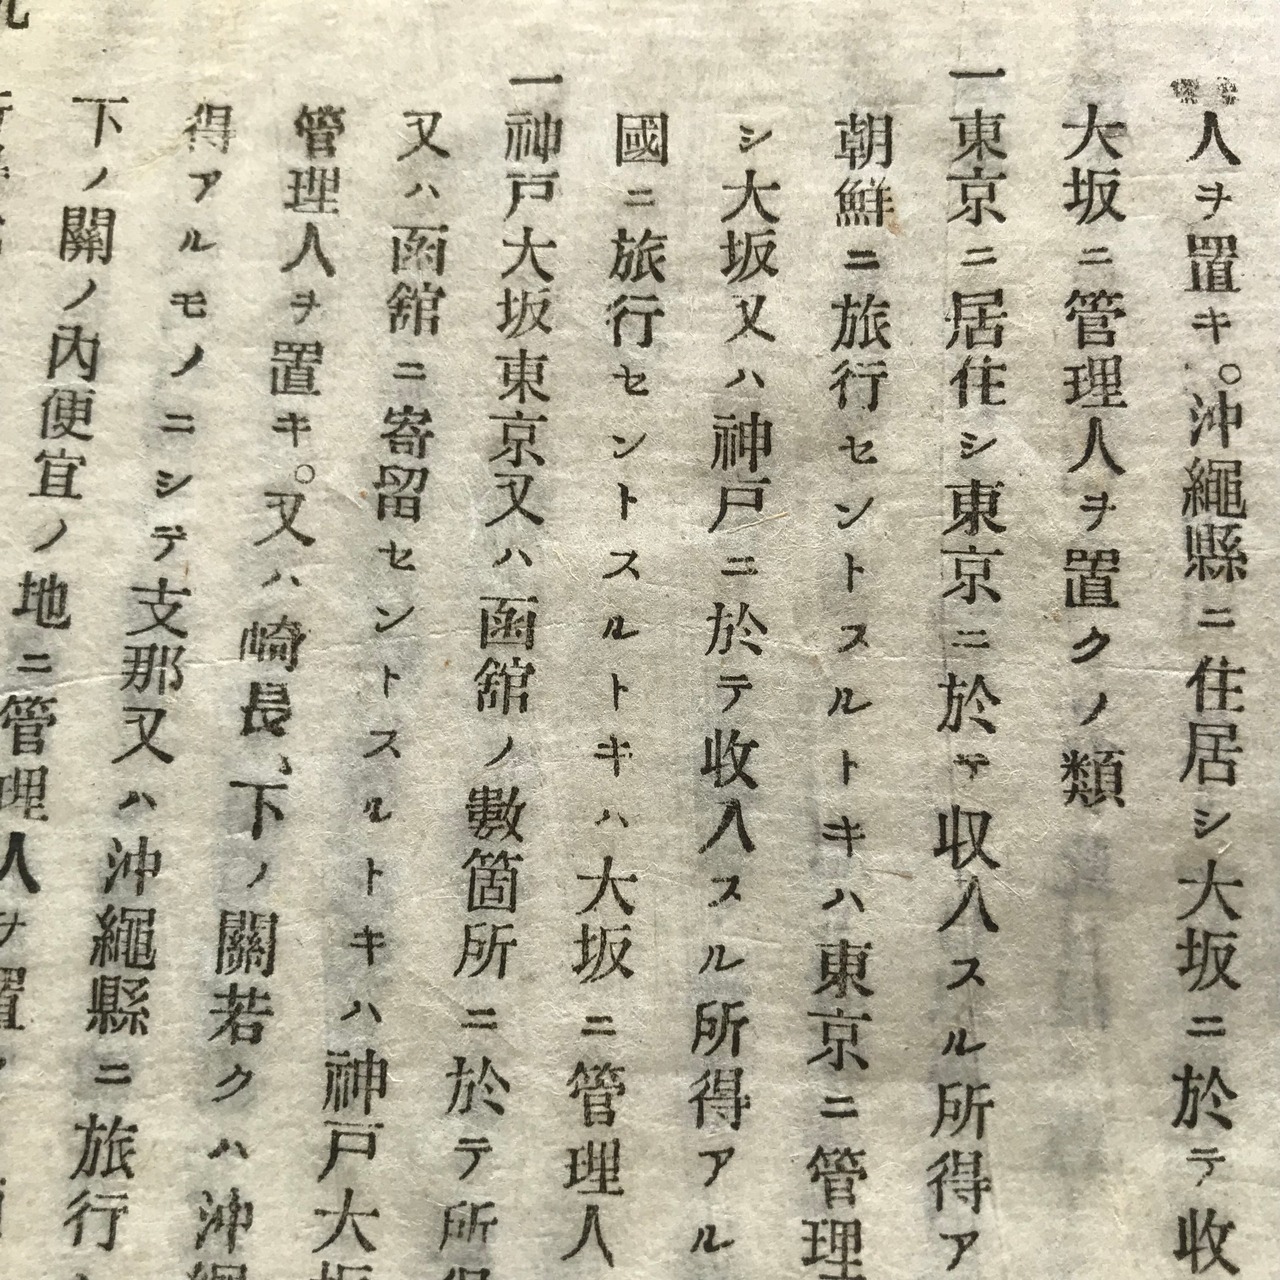 人ヲ置キ。沖繩縣ニ住居シ大坂ニ於テ收
大坂ニ管理人ヲ置クノ類
一東京ニ居住シ東京ニ於テ収入スル所得ア
朝鮮ニ旅行セントスルトキハ東京ニ管理
シ大坂又ハ神戸ニ於テ收入スル所得アル
國ニ旅行セントスルトキハ大坂ニ管理人
一神戸大坂東京又ハ函舘ノ數箇所ニ於テ所得
又ハ函舘ニ寄留セントスルトキハ神戸大坂
管理人ヲ置キ。又ハ崎長、下ノ關若クハ沖繩
得アルモノニシテ支那又ハ沖繩縣ニ旅行
下ノ關ノ內便宜ノ地ニ管理人ヲ置